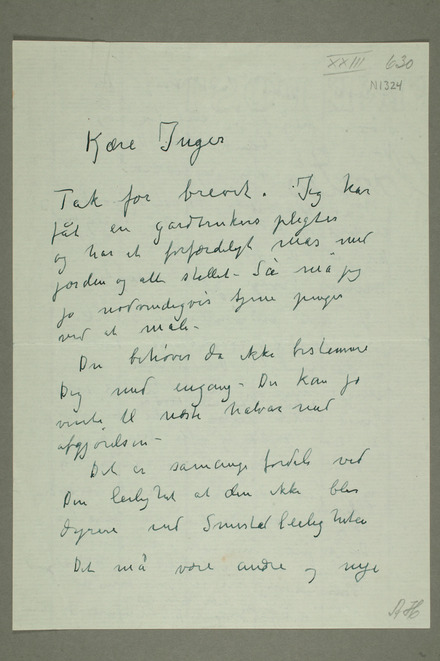 XXIII 630
N1324
Kære Inger
Tak for brevet. Jeg har
fåt en gardbrukers plegter
og har et forfærdeligt mas med
jorden og alt stellet - Så må jeg
jo nødvendigvis tjene penger
ved at male -
Du behøver da ikke bestemme
Dig med engang - Du kan jo
vente til næste halvår med
afgjørelsen -
Det er så mange fordele ved
Din leilighet at den ikke blir
dyrere end
Det må være andre og nye